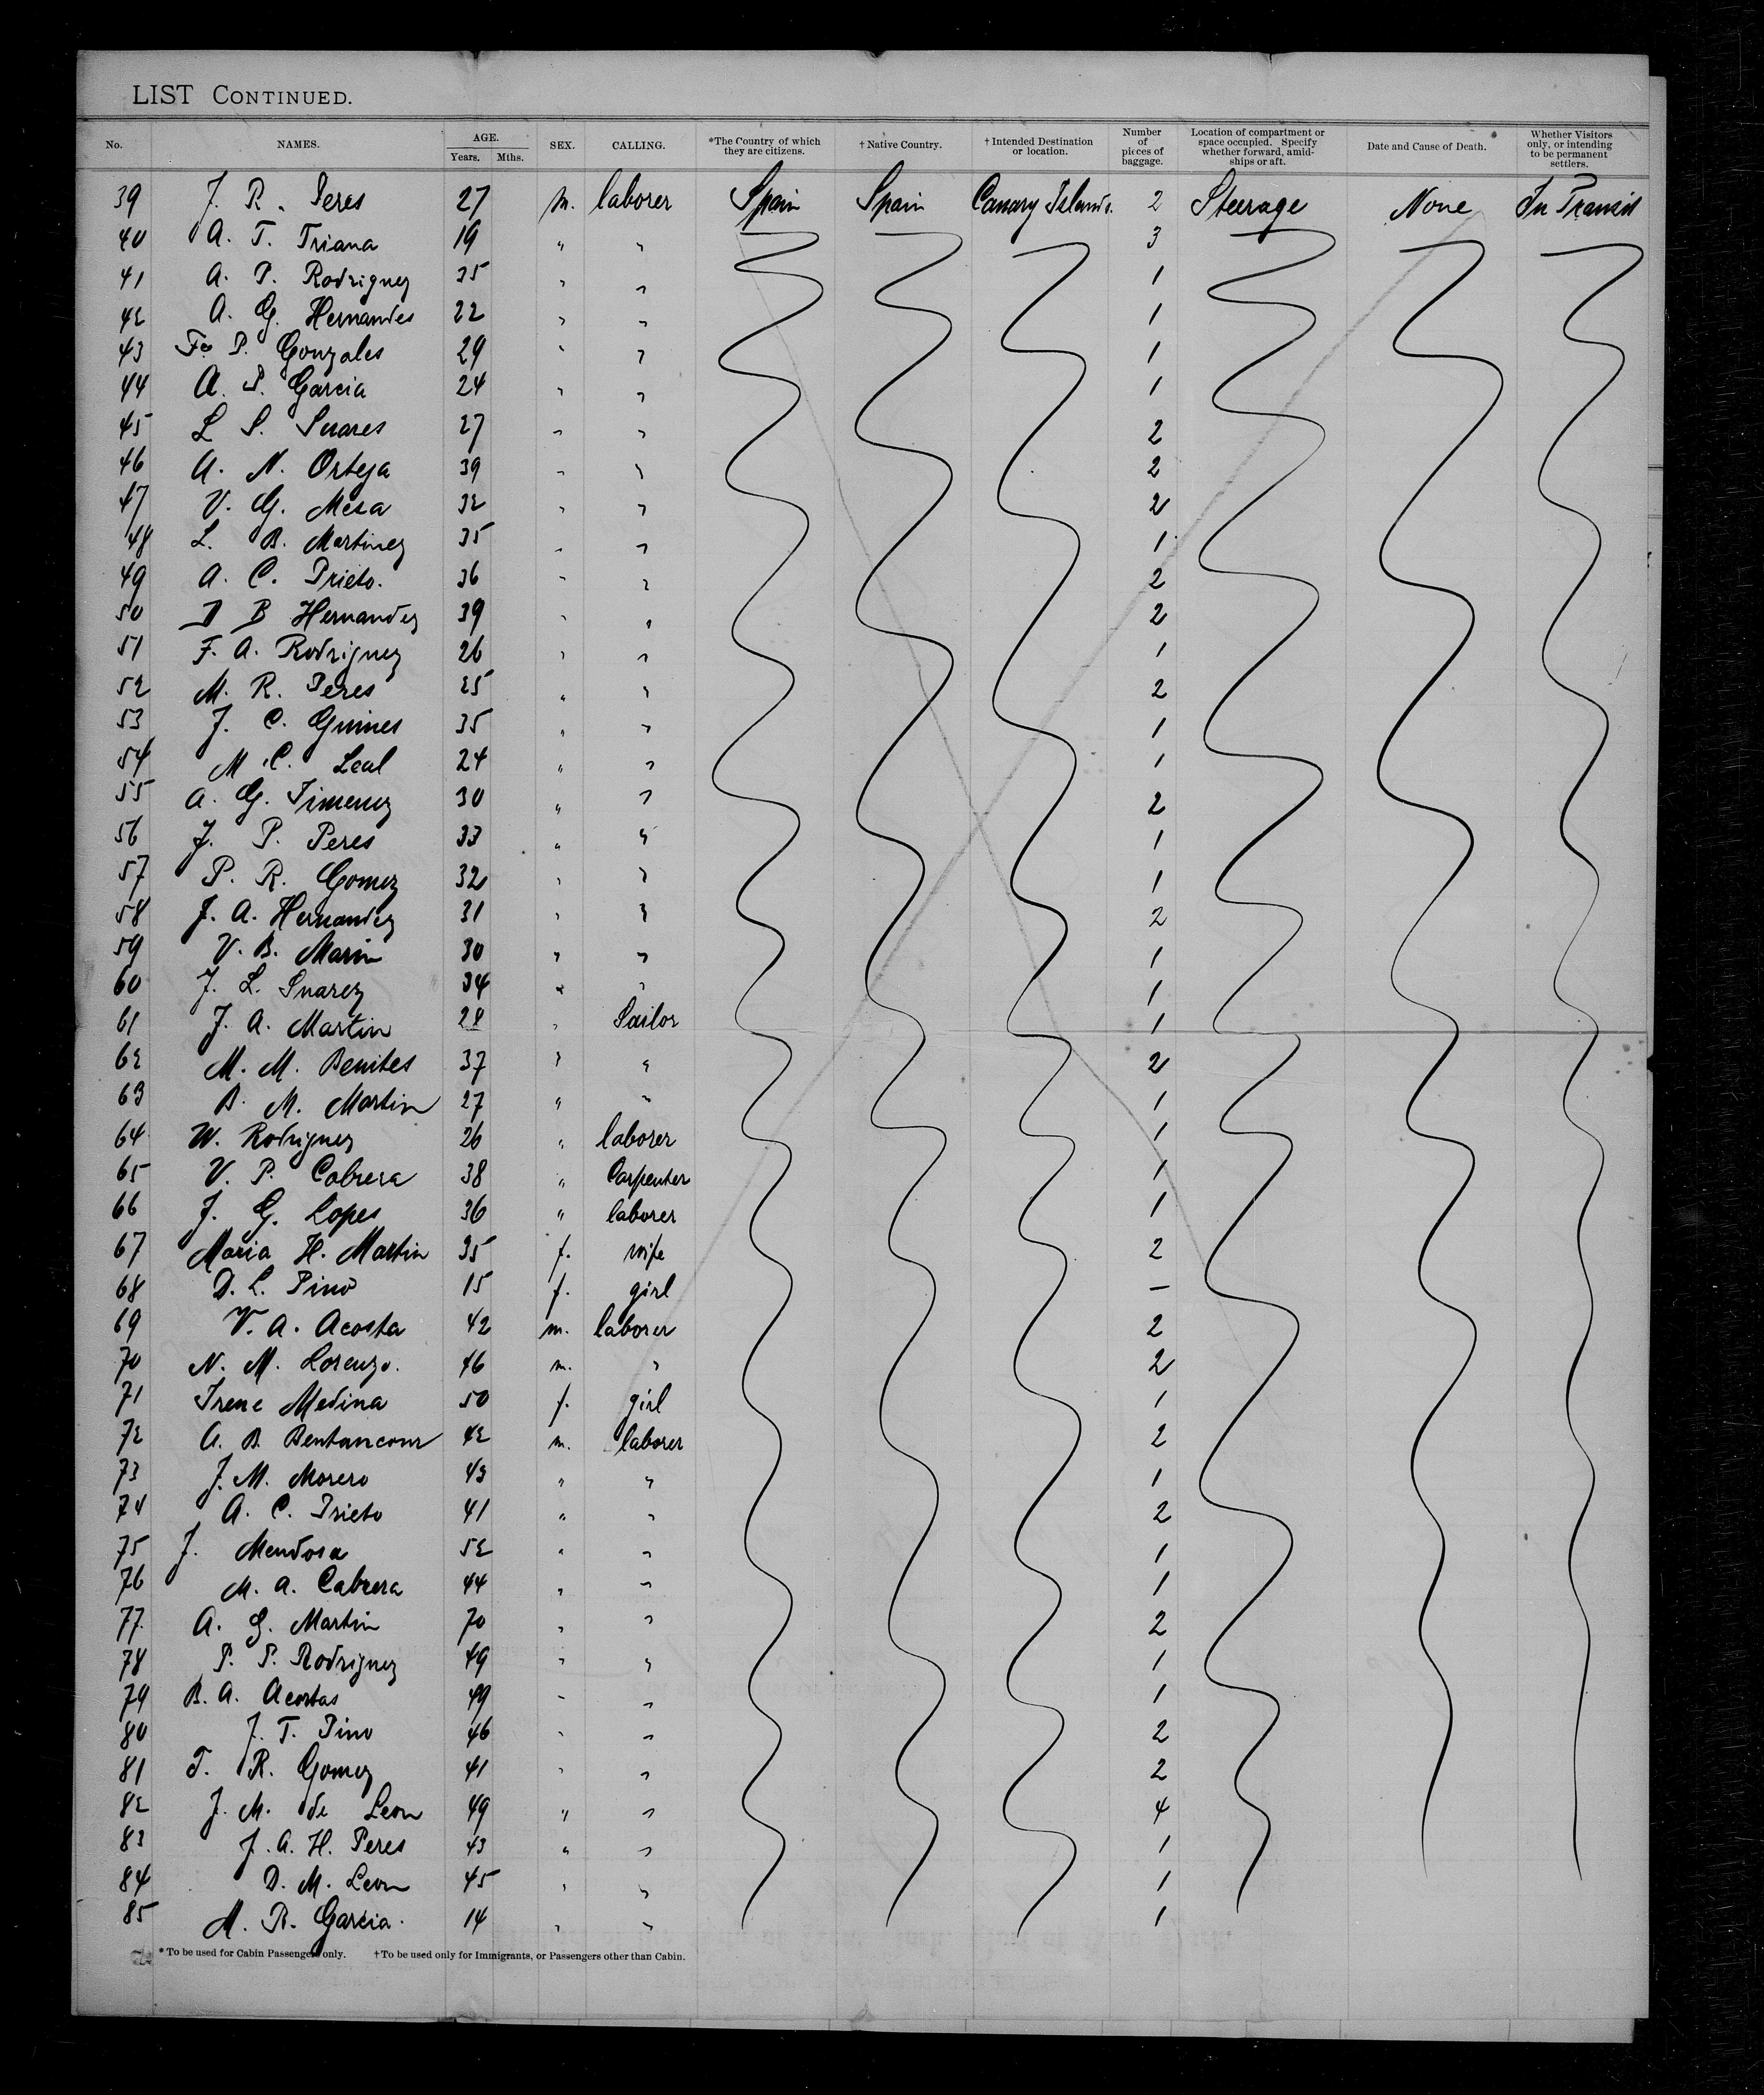 LIST CONTINUED.
No. NAMES. AGE. Years. Mths. SEX. CALLING. *The Country of which they are citizens. †Native Country. †Intended Destination or location. Number of pieces of baggage. Location of compartment or space occupied. Specify whether forward, amidships or aft. Date and Cause of Death. Whether Visitors only, or intending to be permanent settlers.
39 J. R. Peres 27 m. laborer Spain Spain Canary Islands. 2 Steerage None In Transit
40 A. T. Triana 19 " " 3
41 A. P. Rodriguez 35 " " 1
42 A. G. Hernandes 22 " " 1
43 Fo P. Gonzales 29 " " 1
44 A. P. Garcia 24 " " 1
45 L S. Suares 27 " " 2
46 A. N. Ortega 39 " " 2
47 V. G. Mesa 32 " " 2
48 L. B. Martinez 35 " " 1
49 A. C. Prieto. 36 " " 2
50 D B Hernandez 39 " " 2
51 F. A. Rodriguez 26 " " 1
52 M. R. Peres 25 " " 2
53 J. C. Guines 35 " " 1
54 M. C. Leal 24 " " 1
55 A. G. Jimenez 30 " " 2
56 J. P. Peres 33 " " 1
57 P. R. Gomez 32 " " 1
58 J. A. Hernandez 31 " " 2
59 V. B. Marin 30 " " 1
60 J. L. Suarez 34 " " 1
61 J. A. Martin 28 " Sailor 1
62 M. M. Benites 37 " " 2
63 B. M. Martin 27 " " 1
64 W. Rodriguez 26 " laborer 1
65 V. P. Cabrera 38 " Carpenter 1
66 J. G. Lopes 36 " laborer 1
67 Maria H. Martin 35 f. wife 2
68 D. L. Pino 15 f. girl —
69 V. A. Acosta 42 m. laborer 2
70 N. M. Lorenzo. 46 m. " 2
71 Irene Medina 50 f. girl 1
72 A. B. Bentancour 42 m. laborer 2
73 J. M. Morero 43 " " 1
74 A. C. Prieto 41 " " 2
75 J. Mendosa 52 " " 1
76 M. A. Cabrera 44 " " 1
77. A. G. Martin 70 " " 2
78 P. P. Rodriguez 49 " " 1
79 B. A. Acostas 49 " " 1
80 J. T. Pino 46 " " 2
81 T. R. Gomez 41 " " 2
82 J. M. de Leon 49 " " 4
83 J. A. H. Peres 43 " " 1
84 D. M. Leon 45 " " 1
85 M. R. Garcia. 14 " " 1
*To be used for Cabin Passengers only. †To be used only for Immigrants, or Passengers other than Cabin.